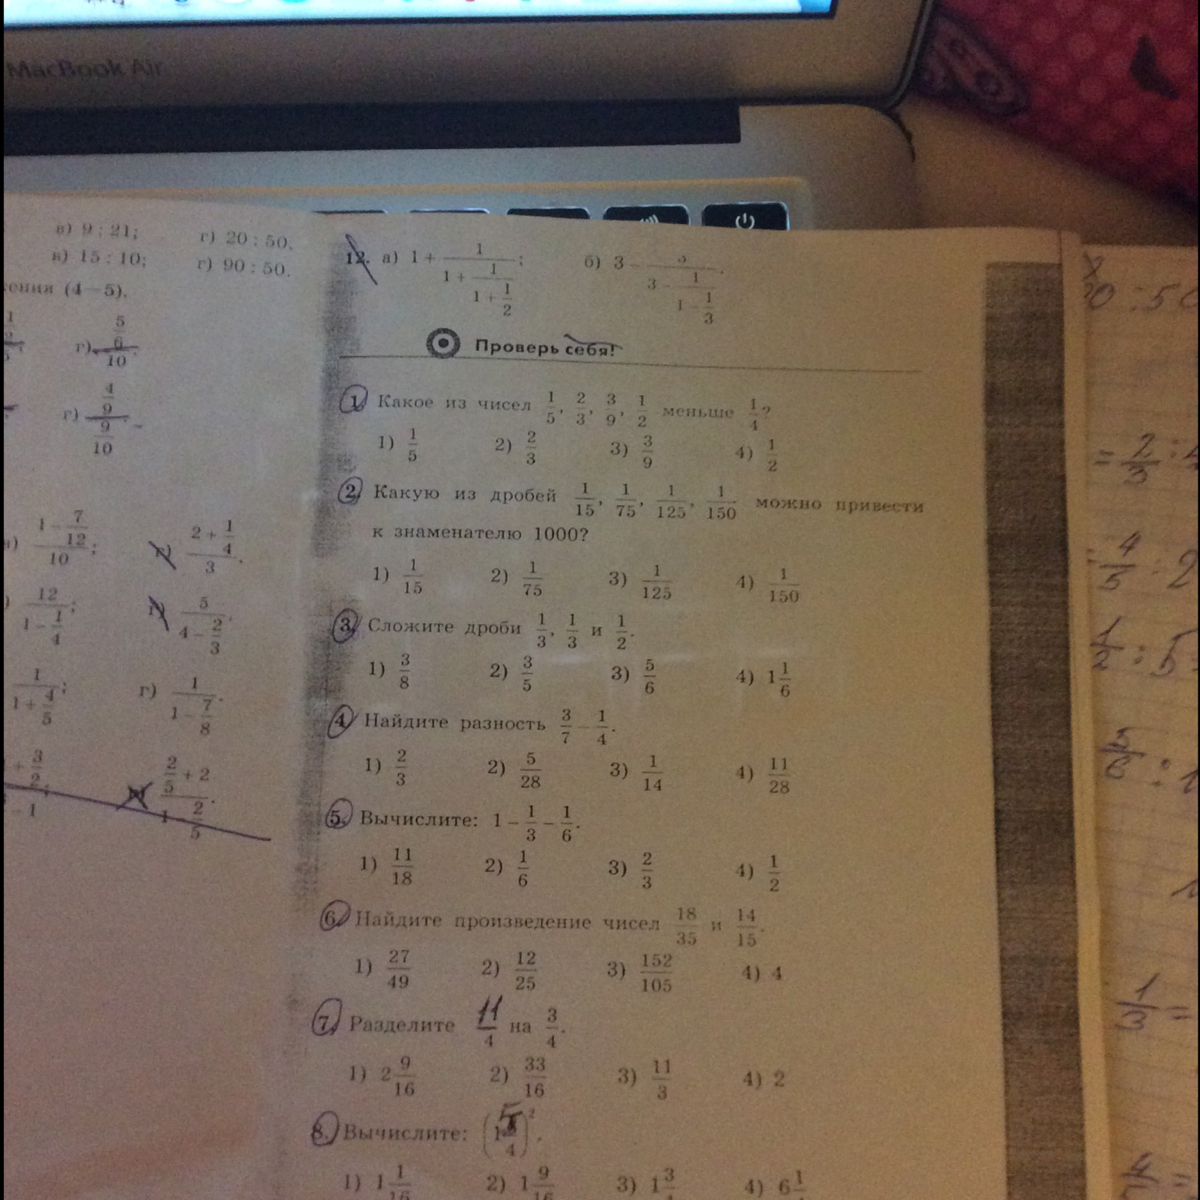 MacBook Air
в) 9 : 21; г) 20 : 50.
в) 15 : 10; г) 90 : 50.
(4—5).
г) 5/6 / 10.
г) 4/9 / 9/10.
1 − 7/12 / 10; 2 + 1/4 / 3.
12 / 1 − 1/4; 5 / 4 − 2/3.
1 / 1 + 4/5; г) 1 / 1 − 7/8.
2/5 + 2 / 1 − 2/5.
12. а) 1 + 1/(1 + 1/(1 + 1/2)); б) 3 − /(3 − 1/(1 − 1/3)).
Проверь себя!
1. Какое из чисел 1/5, 2/3, 3/9, 1/2 меньше 1/4?
1) 1/5 2) 2/3 3) 3/9 4) 1/2
2. Какую из дробей 1/15, 1/75, 1/125, 1/150 можно привести
к знаменателю 1000?
1) 1/15 2) 1/75 3) 1/125 4) 1/150
3. Сложите дроби 1/3, 1/3 и 1/2.
1) 3/8 2) 3/5 3) 5/6 4) 1 1/6
4. Найдите разность 3/7 − 1/4.
1) 2/3 2) 5/28 3) 1/14 4) 11/28
5. Вычислите: 1 − 1/3 − 1/6.
1) 11/18 2) 1/6 3) 2/3 4) 1/2
6. Найдите произведение чисел 18/35 и 14/15.
1) 27/49 2) 12/25 3) 152/105 4) 4
7. Разделите 11/4 на 3/4.
1) 2 9/16 2) 33/16 3) 11/3 4) 2
8. Вычислите:
1) 1 1/16 2) 1 9/16 3) 1 3/ 4) 6 1/